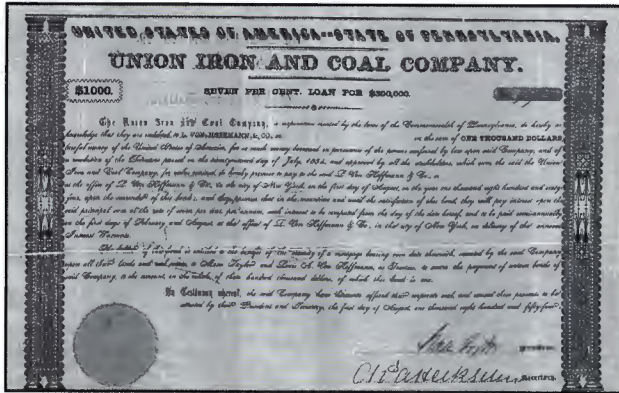 UNITED STATES OF AMERICA--STATE OF PENNSYLVANIA.
UNION IRON AND COAL COMPANY.
$1000. SEVEN PER CENT. LOAN FOR $300,000.
The Union Iron and Coal Company, a corporation created by the laws of the Commonwealth of Pennsylvania, do hereby acknowledge
that they are indebted to L. VON HOFFMANN & CO. in the sum of ONE THOUSAND DOLLARS,
lawful money of the United States of America, for so much money borrowed in pursuance of the powers conferred by law upon said Company, and of
a resolution of the Directors passed on the day of July, 1854, and approved by all the stockholders, which sum the said the Union
Iron and Coal Company, for value received, do hereby promise to pay to the said L. Von Hoffmann & Co.
at the office of L. Von Hoffmann & Co. in the city of New York, on the first day of August, in the year one thousand eight hundred and sixty
four, upon the surrender of this bond; and they promise that in the meantime and until the satisfaction of this bond, they will pay interest upon the
said principal sum at the rate of seven per cent. per annum, said interest to be computed from the day of the date hereof, and to be paid semi-annually
on the first days of February and August, at the office of L. Von Hoffmann & Co., in the city of New York, on delivery of the annexed
Interest Warrants.
The holder of this bond is entitled to the benefit of the security of a mortgage bearing even date herewith, executed by the said Company
upon all their lands and to Taylor and Louis A. Von Hoffmann, as Trustees, to secure the payment of certain bonds of
said Company, to the amount, in the whole, of three hundred thousand dollars, of which this bond is one.
In Testimony whereof, the said Company have hereunto affixed their corporate seal, and caused these presents to be
attested by their President and Secretary, the first day of August, one thousand eight hundred and fifty-four.
President.
Secretary.